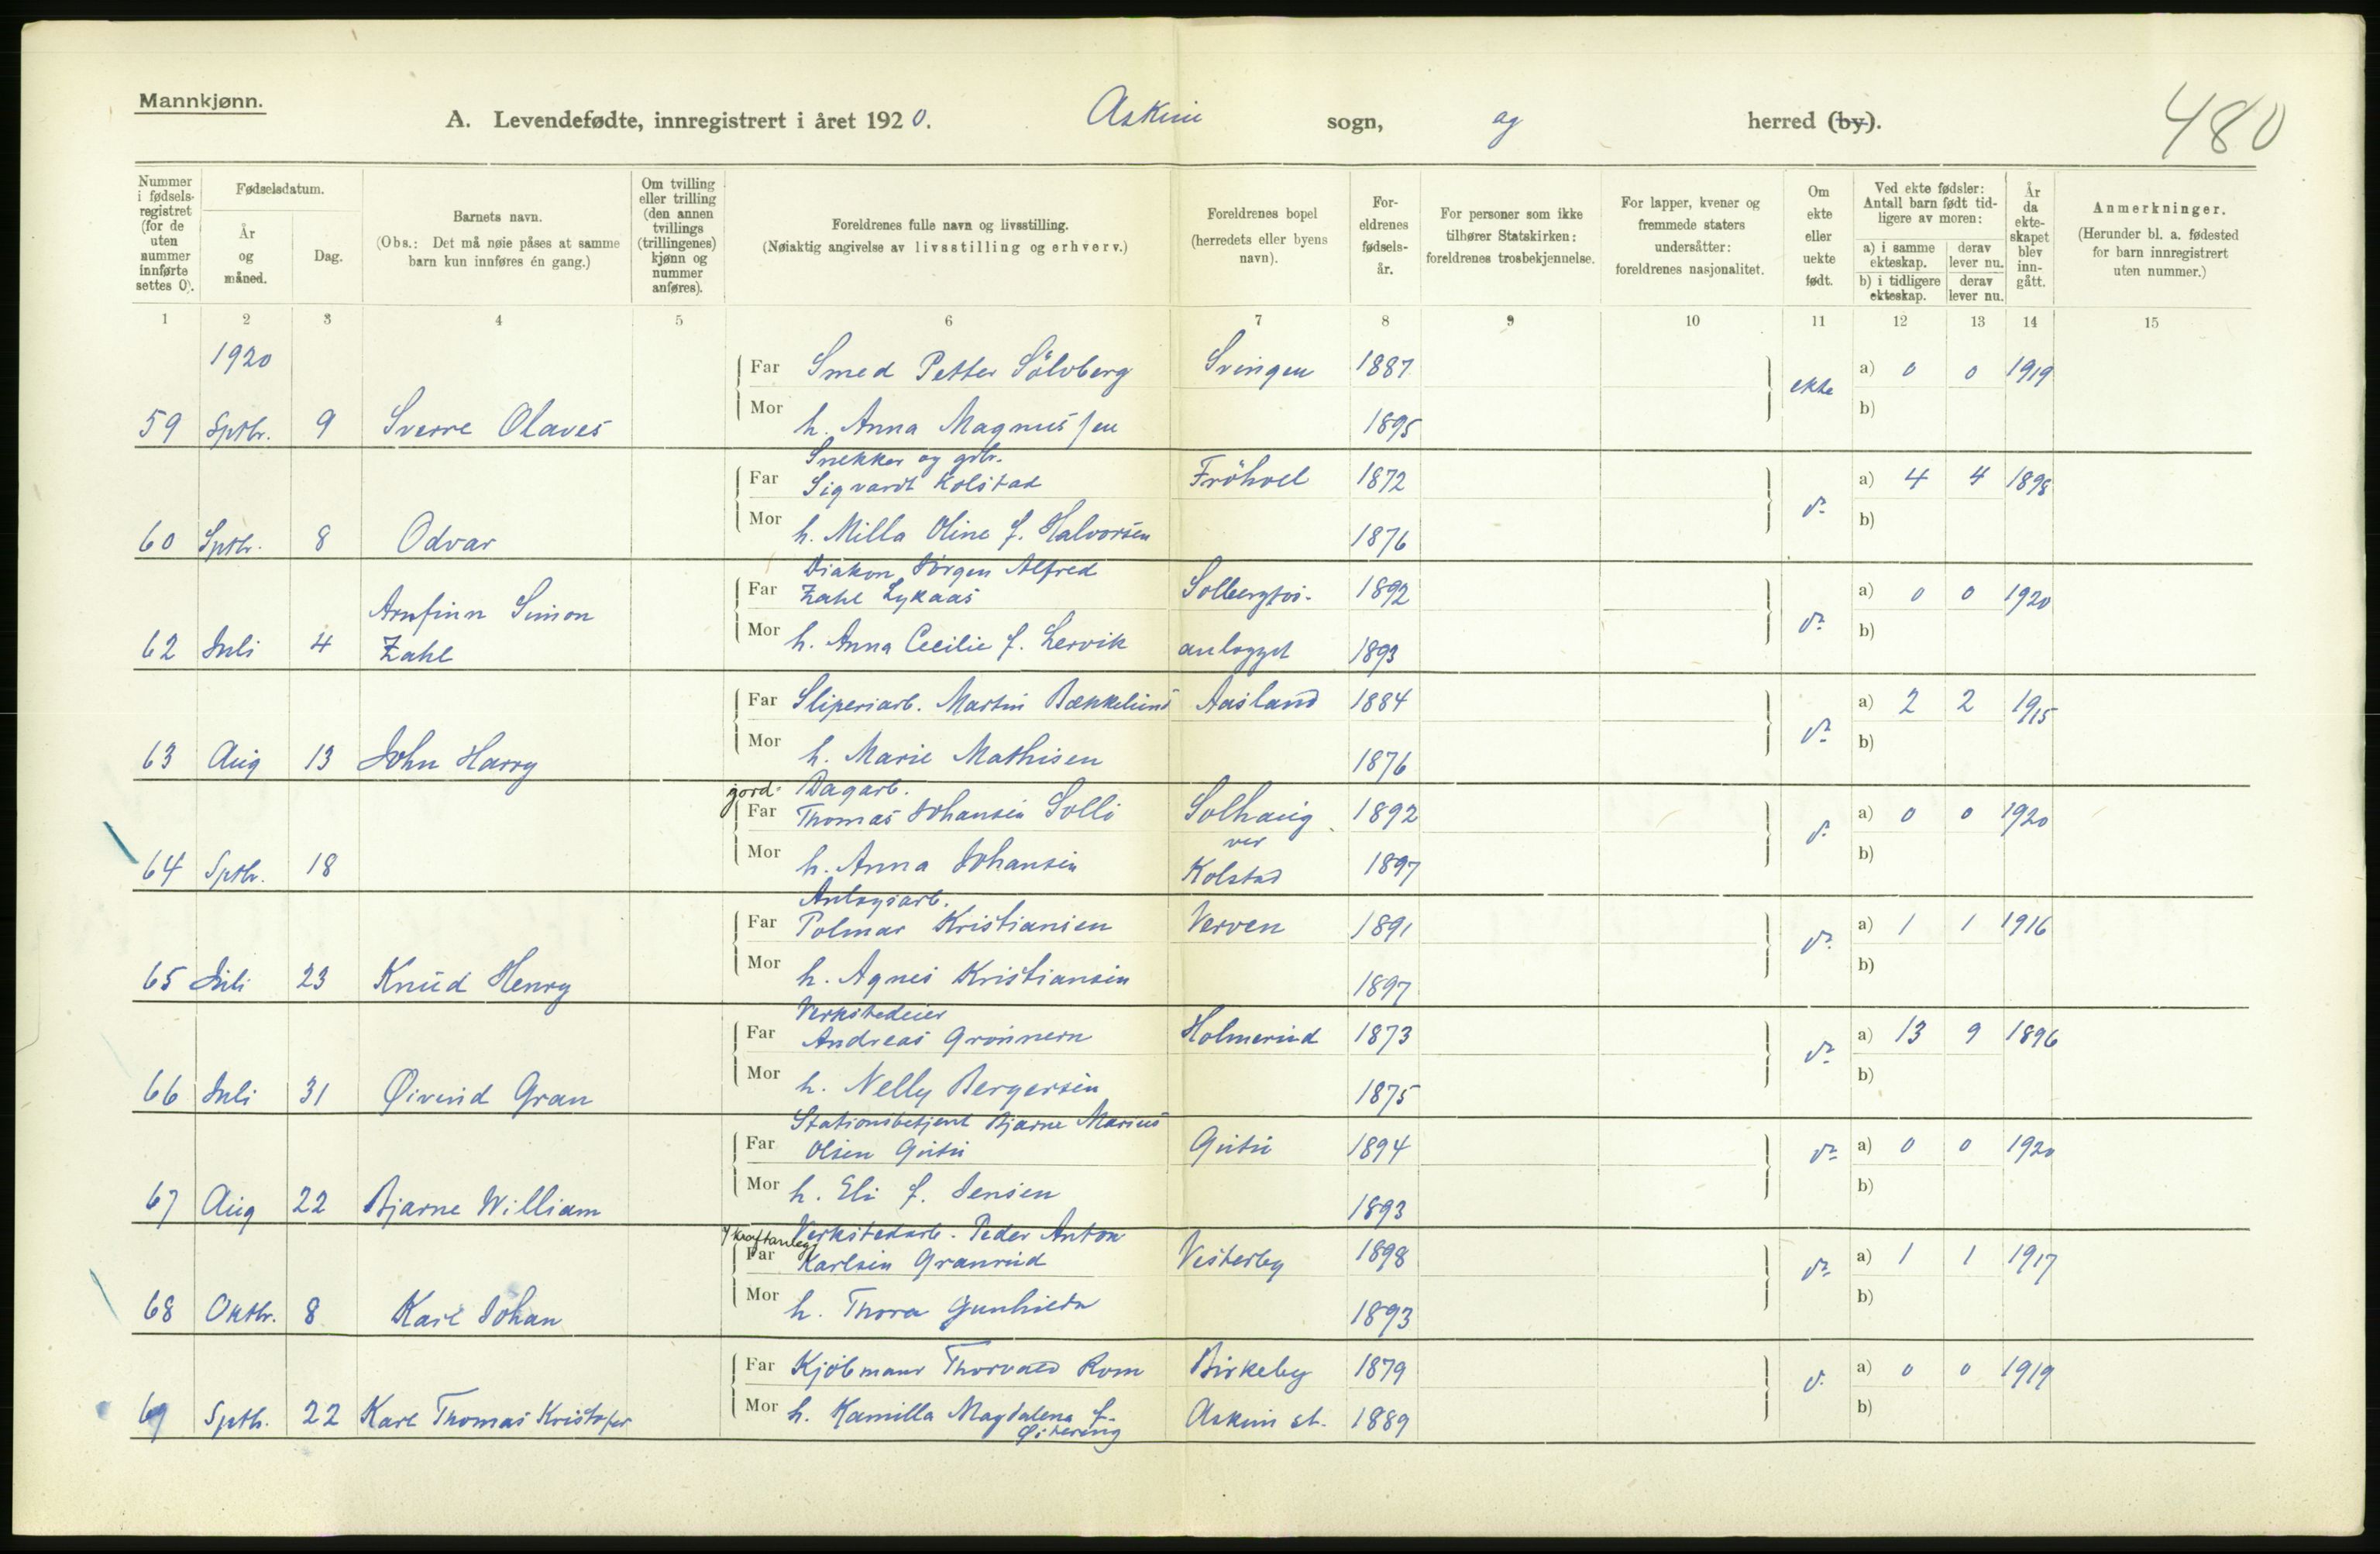 Mannkjønn.
A. Levendefødte, innregistrert i året 1920. Askim sogn, og herred (by).
480
Nummer i fødselsregistret (for de uten nummer innførte settes 0).
Fødselsdatum.
År og måned.
Dag.
Barnets navn.
(Obs.: Det må nøie påses at samme barn kun innføres én gang.)
Om tvilling eller trilling (den annen tvillings (trillingenes) kjønn og nummer anføres).
Foreldrenes fulle navn og livsstilling.
(Nøiaktig angivelse av livsstilling og erhverv.)
Foreldrenes bopel (herredets eller byens navn).
Foreldrenes fødselsår.
For personer som ikke tilhører Statskirken: foreldrenes trosbekjennelse.
For lapper, kvener og fremmede staters undersåtter: foreldrenes nasjonalitet.
Om ekte eller uekte født.
Ved ekte fødsler: Antall barn født tidligere av moren:
a) i samme ekteskap. derav lever nu.
b) i tidligere ekteskap. derav lever nu.
År da ekteskapet blev inngått.
Anmerkninger.
(Herunder bl. a. fødested for barn innregistrert uten nummer.)
1 2 3 4 5 6 7 8 9 10 11 12 13 14 15
1920
Far Smed Petter Sölvberg Svingen 1887 ekte a) 0 0 1919
59 Sptbr. 9 Sverre Olaves Mor h. Anna Magnussen 1895 b)
Snekker og gbr.
Far Sigvardt Kolstad Fröhoel 1872 do a) 4 4 1898
60 Sptbr. 8 Odvar Mor h. Milla Oline f. Halvorsen 1876 b)
Diakon Jörgen Alfred
Far Zahl Lykaas Solbergfos- 1892 do a) 0 0 1920
Arnfinn Simon
62 Juli 4 Zahl Mor h. Anna Cecilie f. Lervik anlegget 1893 b)
Far Sliperiarb. Martin Bækkelund Aasland 1884 do a) 2 2 1915
63 Aug 13 John Harry Mor h. Marie Mathisen 1876 b)
jord- Dagarb.
Far Thomas Johansen Solli Solhaug 1892 do a) 0 0 1920
ver
64 Sptbr. 18 Mor h. Anna Johansen Kolstad 1897 b)
Anlegsarb.
Far Polmar Kristiansen Verven 1891 do a) 1 1 1916
65 Juli 23 Knud Henry Mor h. Agnes Kristiansen 1897 b)
Verkstedeier
Far Andreas Grönnern Holmerud 1873 do a) 13 9 1896
66 Juli 31 Øivind Gran Mor h. Nelly Bergersen 1875 b)
Stationsbetjent Bjarne Marius
Far Olsen Gutu Gutu 1894 do a) 0 0 1920
67 Aug 22 Bjarne William Mor h. Eli f. Jensen 1893 b)
kraftanlegg Verkstedarb. Peder Anton
Far Karlsen Granrud Vesterby 1898 do a) 1 1 1917
68 Oktbr. 8 Karl Johan Mor h. Thora 1893 b)
Far Kjöbmann Thorvald Rom Birkeby 1879 do a) 0 0 1919
69 Sptb. 22 Karl Thomas Kristofer Mor h. Kamilla Magdalena f. Askim st. 1889 b)